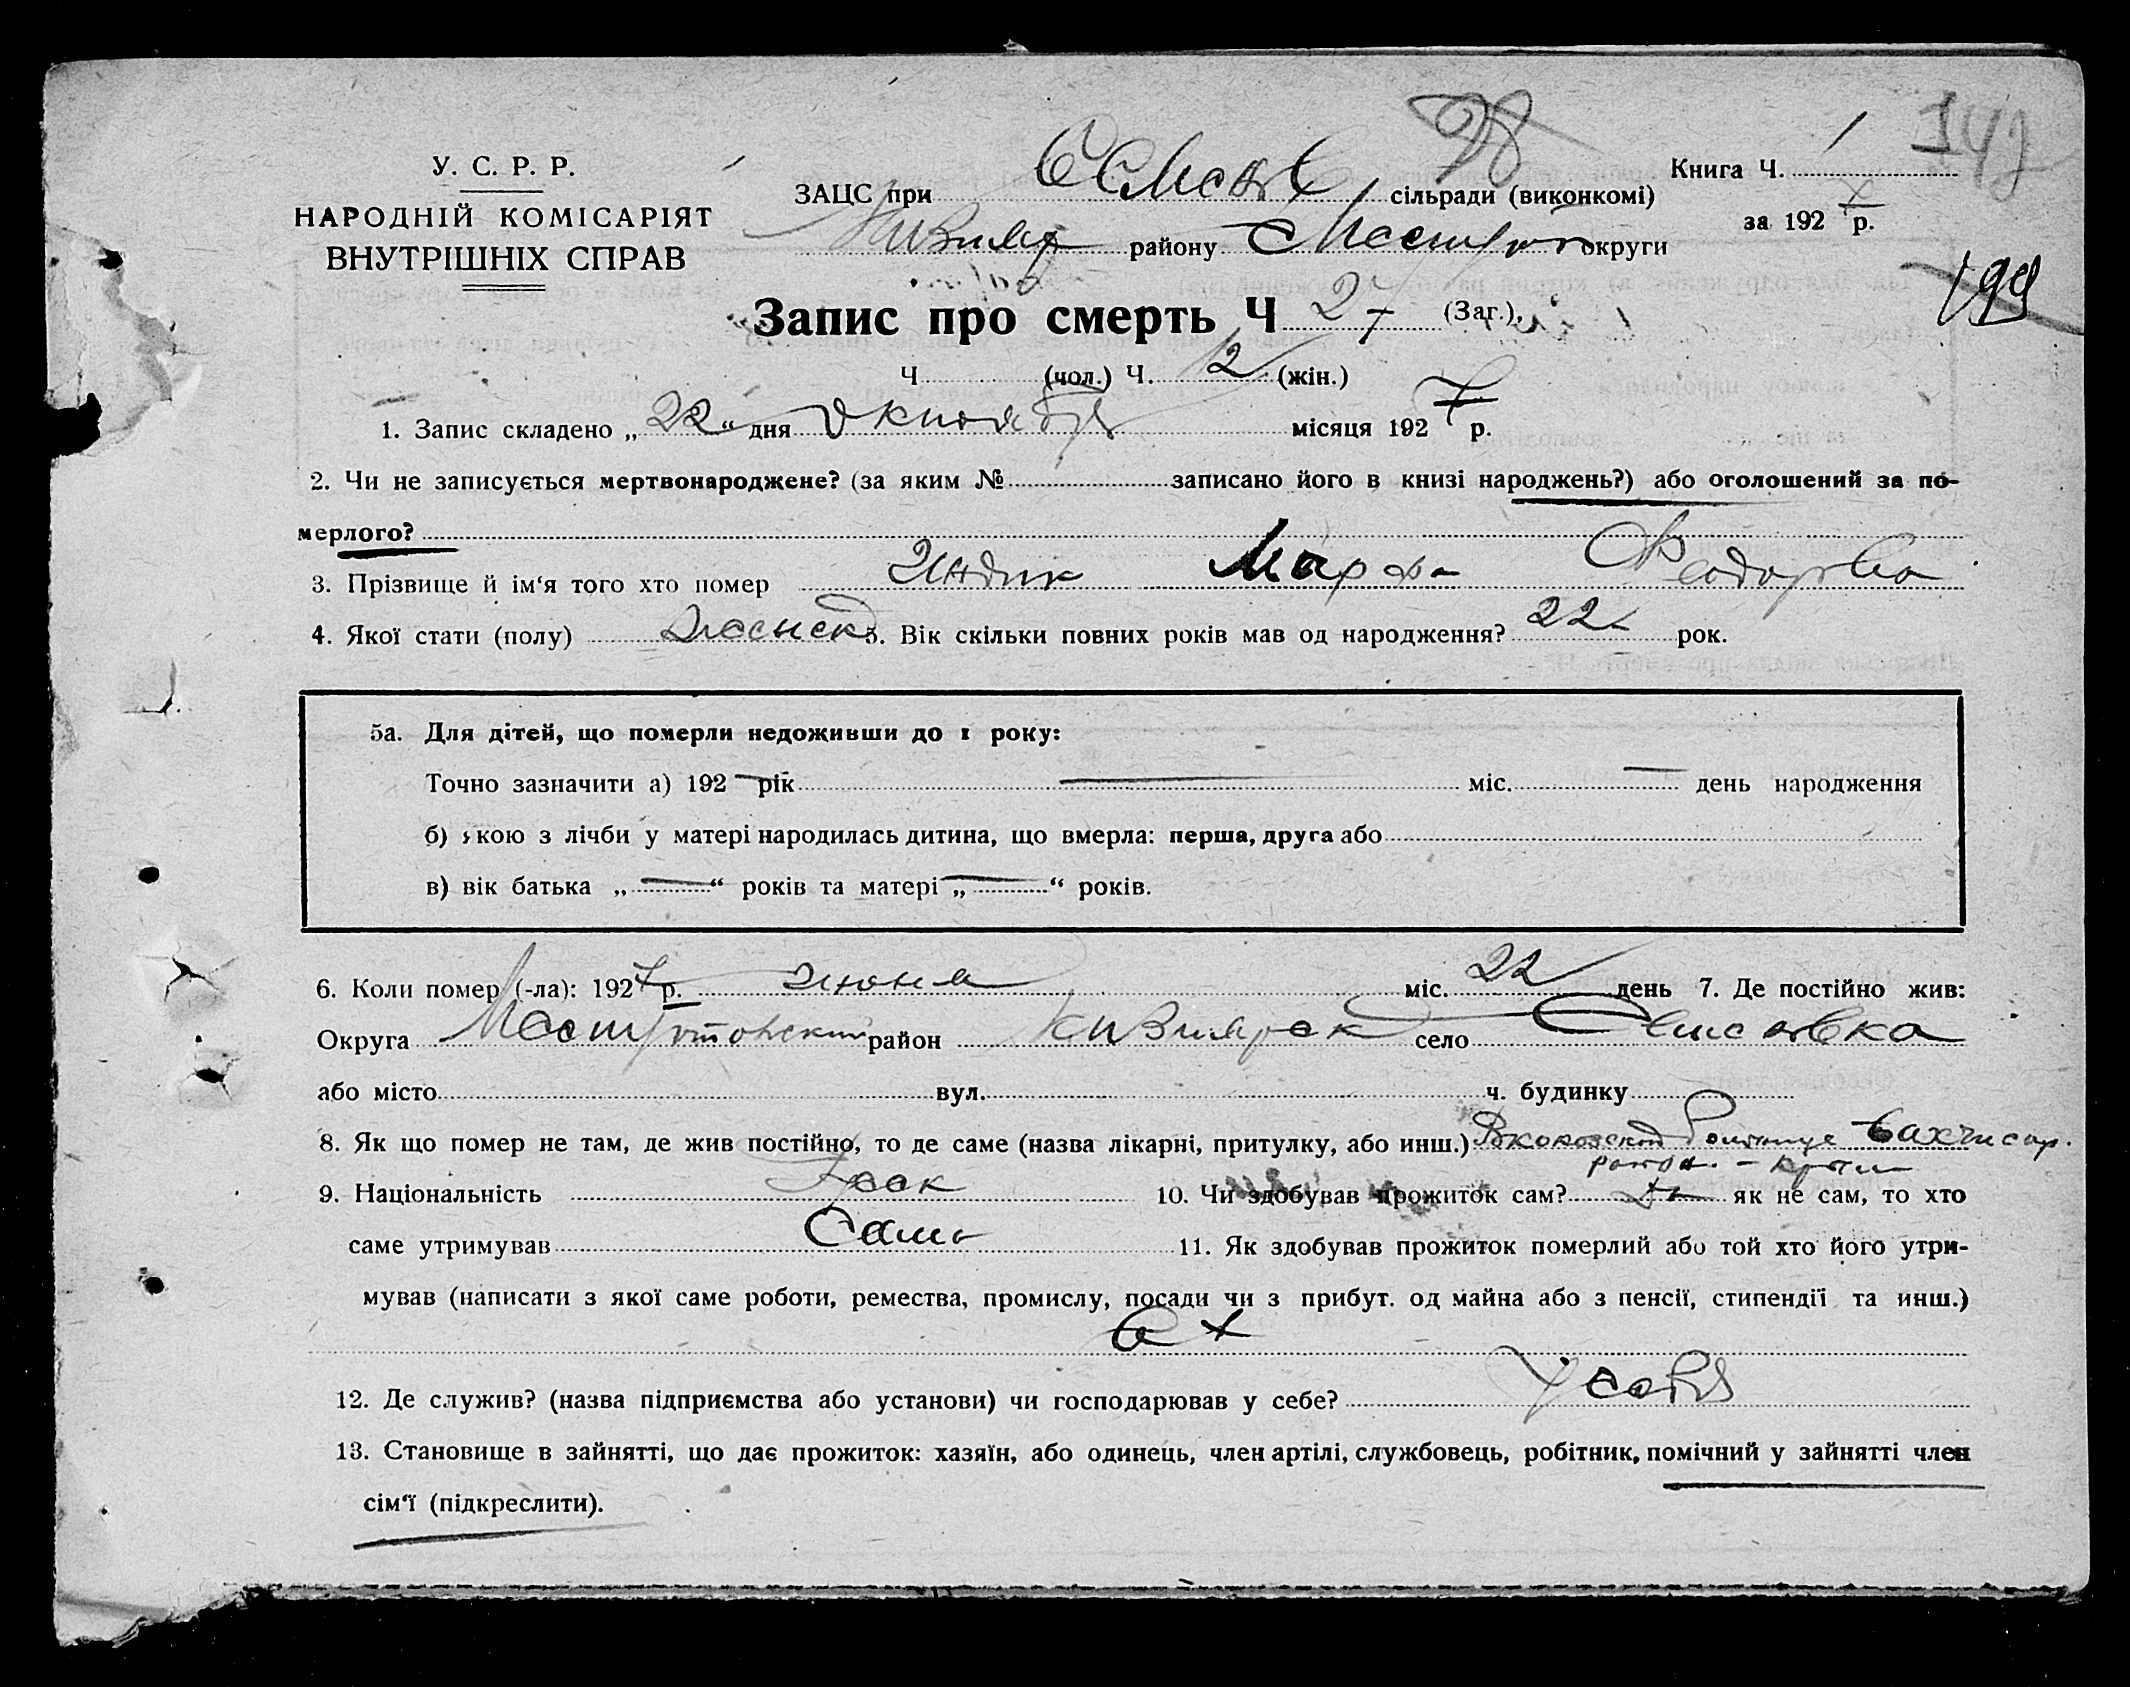 У. С. Р. Р.
НАРОДНІЙ КОМІСАРІЯТ
ВНУТРІШНІХ СПРАВ
98
ЗАЦС при сільради (виконкомі)
району округи
Книга Ч. 1
за 1927 р.
199
Запис про смерть Ч 27 (Заг.),
Ч (чол.) Ч. 12 (жін.)
1. Запис складено „22“ дня Октября місяця 1927 р.
2. Чи не записується мертвонароджене? (за яким № записано його в книзі народжень?) або оголошений за по-
мерлого?
3. Прізвище й ім'я того хто помер Индик Марфа Феодоровна
4. Якої стати (полу) Женск 5. Вік скільки повних років мав од народження? 22 рок.
5а. Для дітей, що померли недоживши до 1 року:
Точно зазначити а) 192 — рік — міс. — день народження
б) якою з лічби у матері народилась дитина, що вмерла: перша, друга або
в) вік батька „—“ років та матері „—“ років.
6. Коли помер (-ла): 1927 р. июня міс. 22 день 7. Де постійно жив:
Округа район село
або місто вул. ч. будинку
8. Як що помер не там, де жив постійно, то де саме (назва лікарні, притулку, або инш.) больнице Бахчисар.
район. - Крым
9. Національність Грек 10. Чи здобував прожиток сам? да як не сам, то хто
саме утримував Сама 11. Як здобував прожиток померлий або той хто його утри-
мував (написати з якої саме роботи, ремества, промислу, посади чи з прибут. од майна або з пенсії, стипендії та инш.)
12. Де служив? (назва підприємства або установи) чи господарював у себе? у себя
13. Становище в зайнятті, що дає прожиток: хазяїн, або одинець, член артілі, службовець, робітник, помічний у зайнятті член
сім'ї (підкреслити).